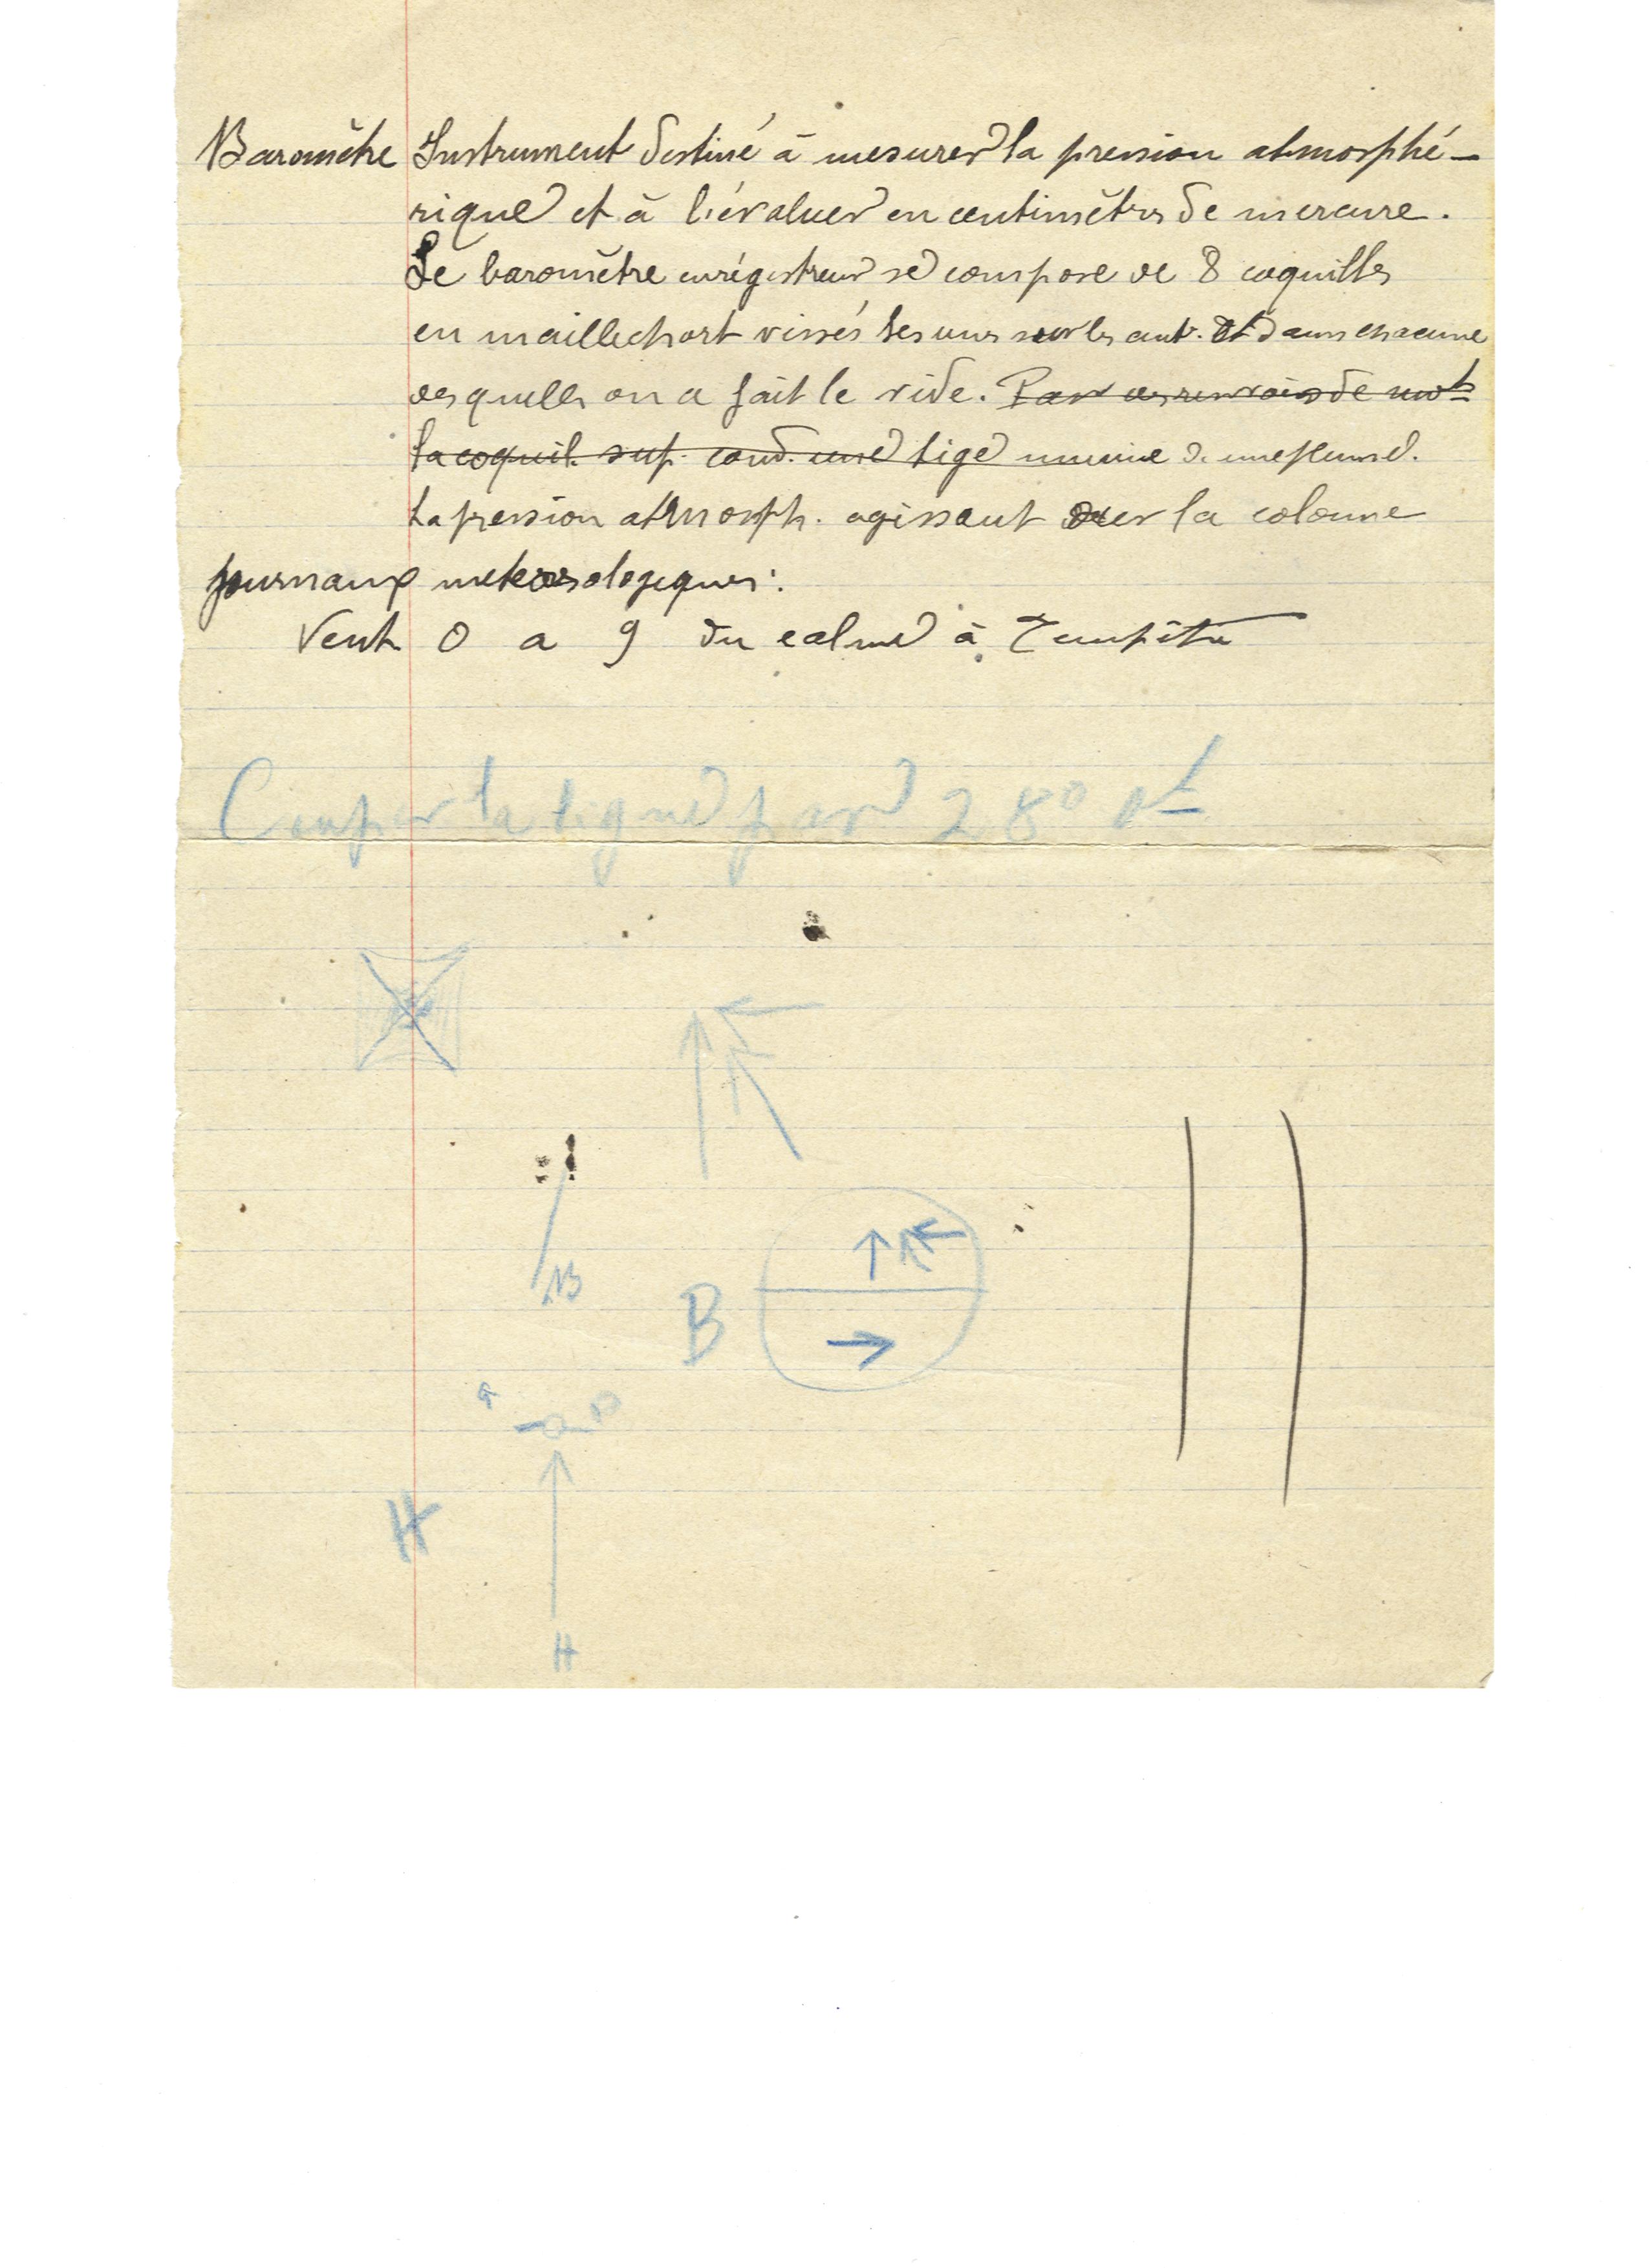 Baromètre Instrument destiné à mesurer la pression atmorsphé-
rique et à l'évaluer en centimètres de mercure.
Le baromètre enrégistreur se compose de 8 coquilles
en maillechort vissés les unes sur les aut. et dans chacune
desquelles on a fait le vide. Par de
la coquil. sup. cond. une tige munie d'une plume.
La pression atmorsph. agissant sur la colonne
Journaux meteorologiques:
Vent 0 a 9 du calme à Tempête
Couper la ligne par 280 pt
B
B
H
H